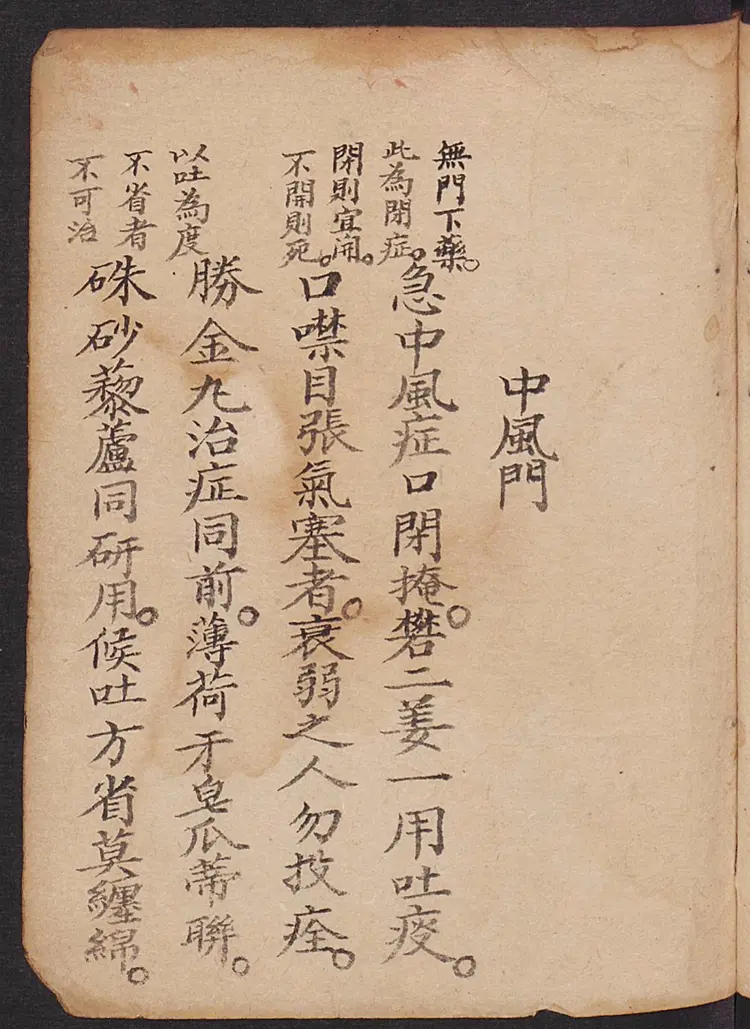 中風門
無門下藥。
此為閉症。
急中風症口閉掩。礬二姜一用吐痰。
閉則宜開。
不開則死。
口噤目張氣塞者。衰弱之人勿投痊。
以吐為度
勝金丸治症同前。薄荷牙皂瓜蒂聯。
不省者
不可治
硃砂藜蘆同研用。候吐方省莫纏綿。